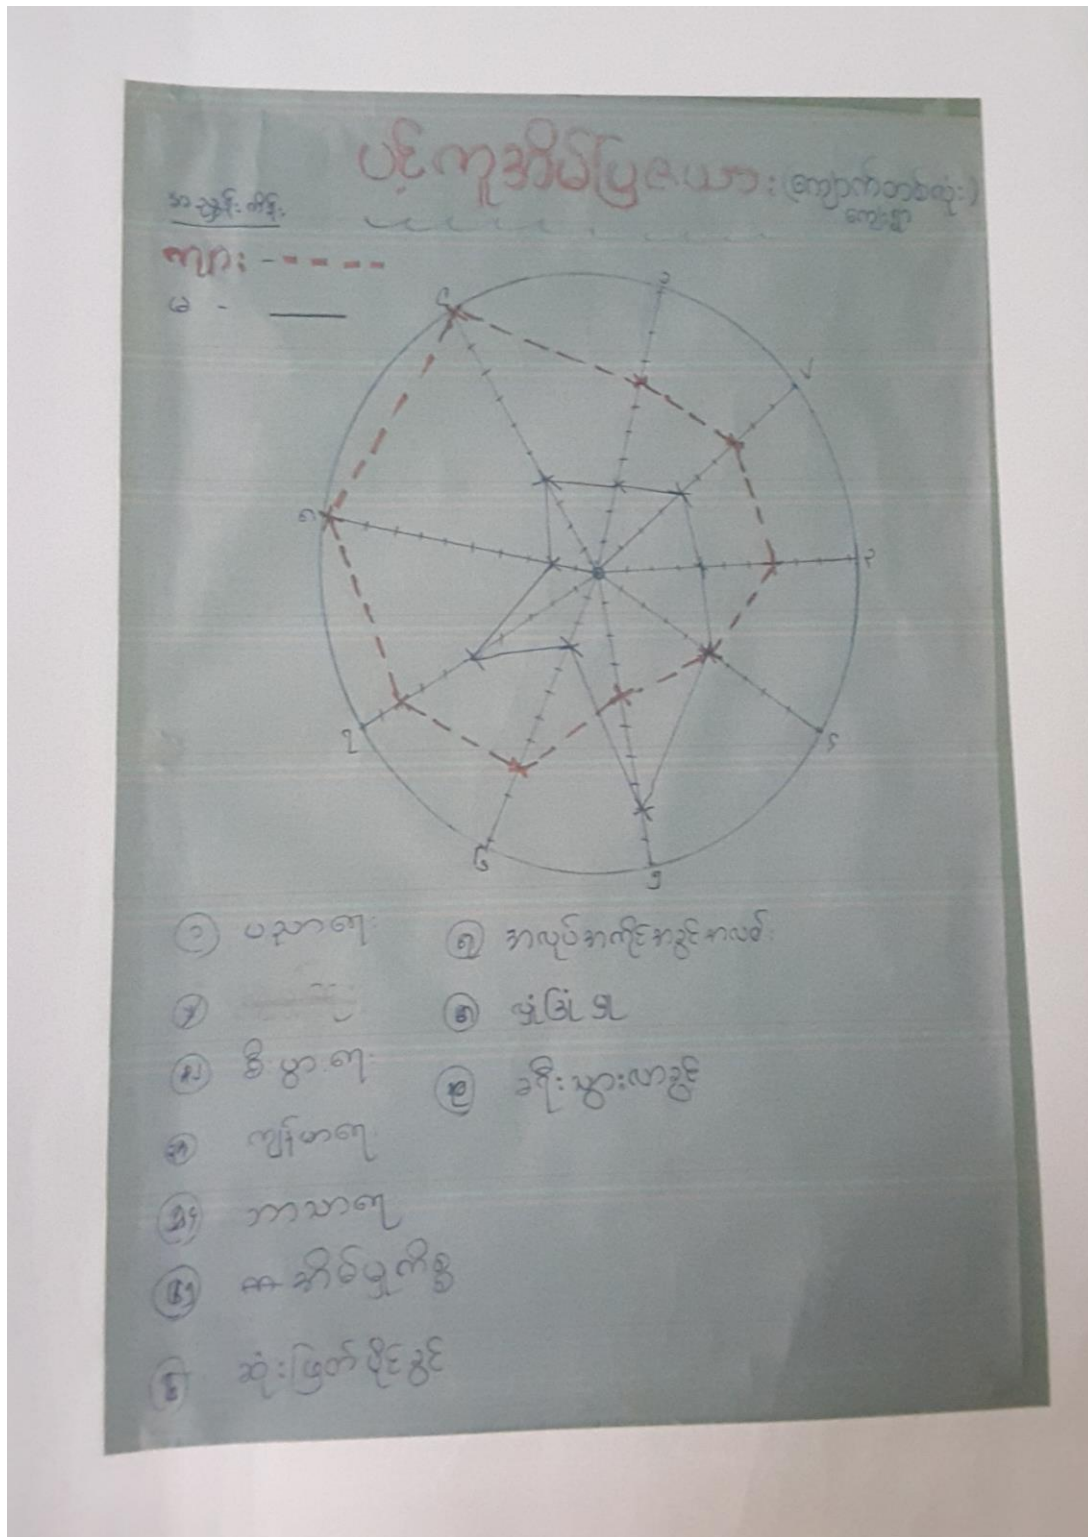 ပင့်ကူအိမ်ပြဇယား (ကျောက်တစ်လုံး)
ကျေးရွာ
အညွှန်းကိန်း
ကျား - ----
မ - ___
၁
၂
၃
၄
၅
၆
၇
၈
၉
၁ ပညာရေး
စီးပွားရေး
ကျန်းမာရေး
ဘာသာရေး
အိမ်မှုကိစ္စ
၆ ဆုံးဖြတ်ပိုင်ခွင့်
၇ အလုပ်အကိုင်အခွင့်အလမ်း
၈ လုံခြုံမှု
၉ ခရီးသွားလာခွင့်